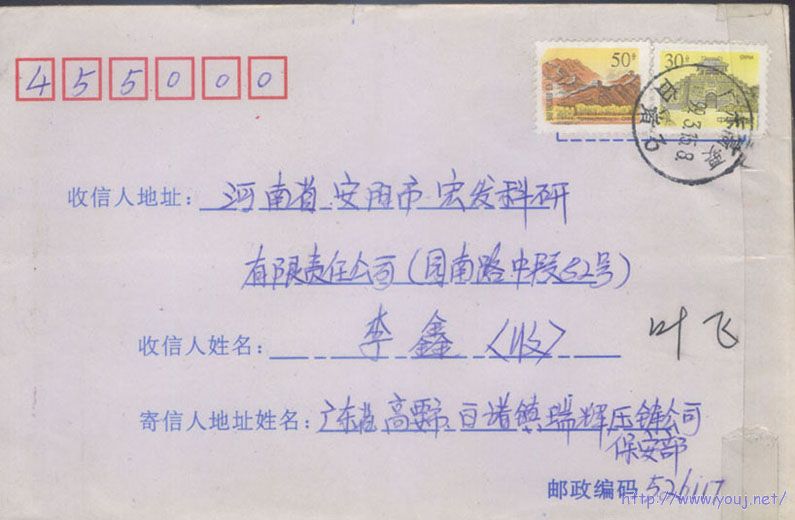 455000
50分
30分
CHINA
收信人地址：河南省安阳市宏发科研
有限责任公司（园南路中段52号）
收信人姓名：李鑫〈收〉
叶飞
寄信人地址姓名：广东省高要市白诸镇瑞辉压铸公司
保安部
邮政编码 526117
http://www.youj.net/